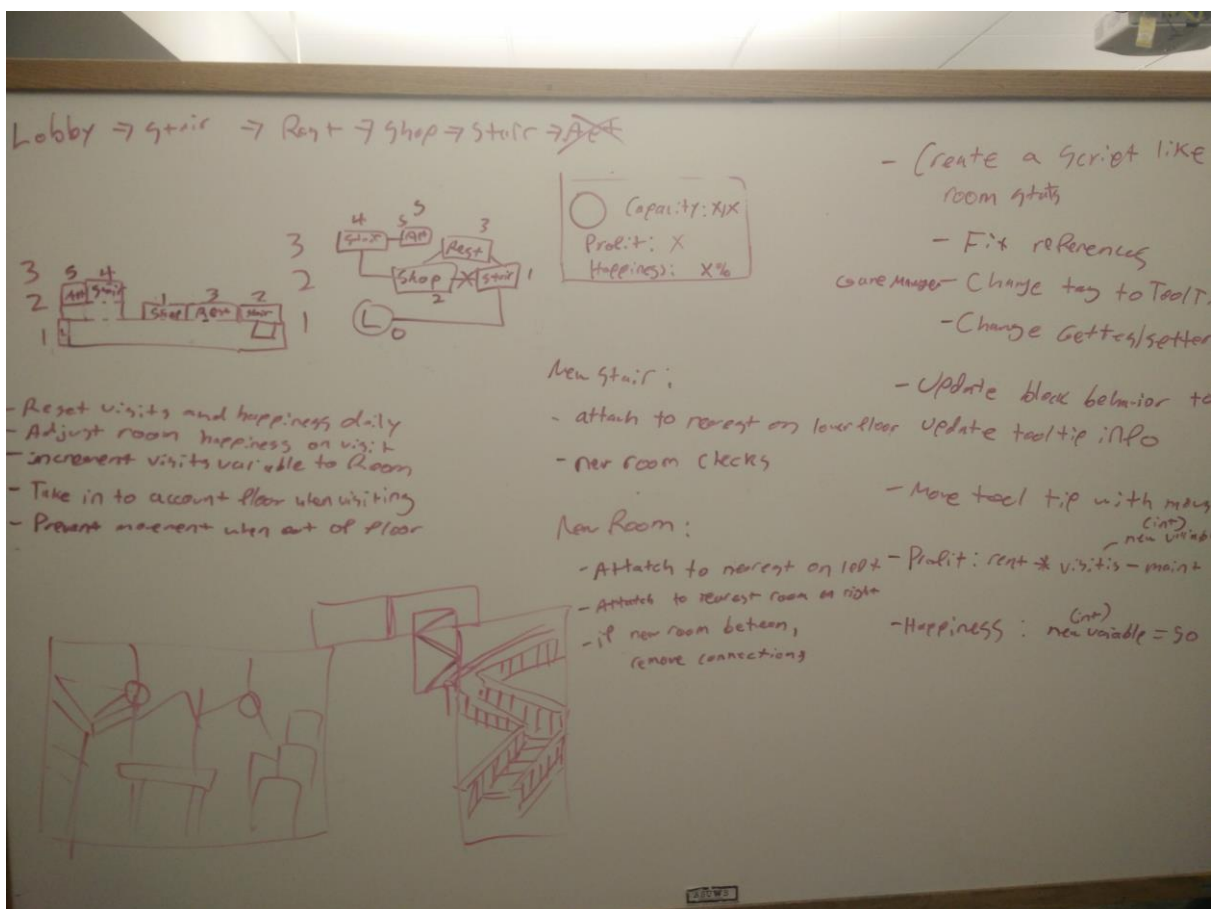 Lobby → Stair → Rest → Shop → Stair → Apt
3
2
1
5
4
Apt
Stair
1
3
2
Shop
Rest
Stair
3
2
1
4
5
5
3
Stair
Apt
Rest
Shop
X
Stair
1
2
L
0
Capacity: X/X
Profit: X
Happiness: X%
- Reset visits and happiness daily
- Adjust room happiness on visit
- increment visits variable to Room
- Take in to account floor when visiting
- Prevent movement when out of floor
New Stair:
- attach to nearest on lower floor
- new room checks
New Room:
- Attatch to nearest on left
- Attatch to nearest room on right
- if new room between,
remove connections
- Create a Script like
room stats
- Fix references
Game Manager - Change tag to ToolT
- Change Getter/setter
- Update block behavior to
update tooltip info
- Move tool tip with mous
(int)
new variabl
- Profit: rent * visitis - maint
(int)
- Happiness: new variable = 50
ASUWS